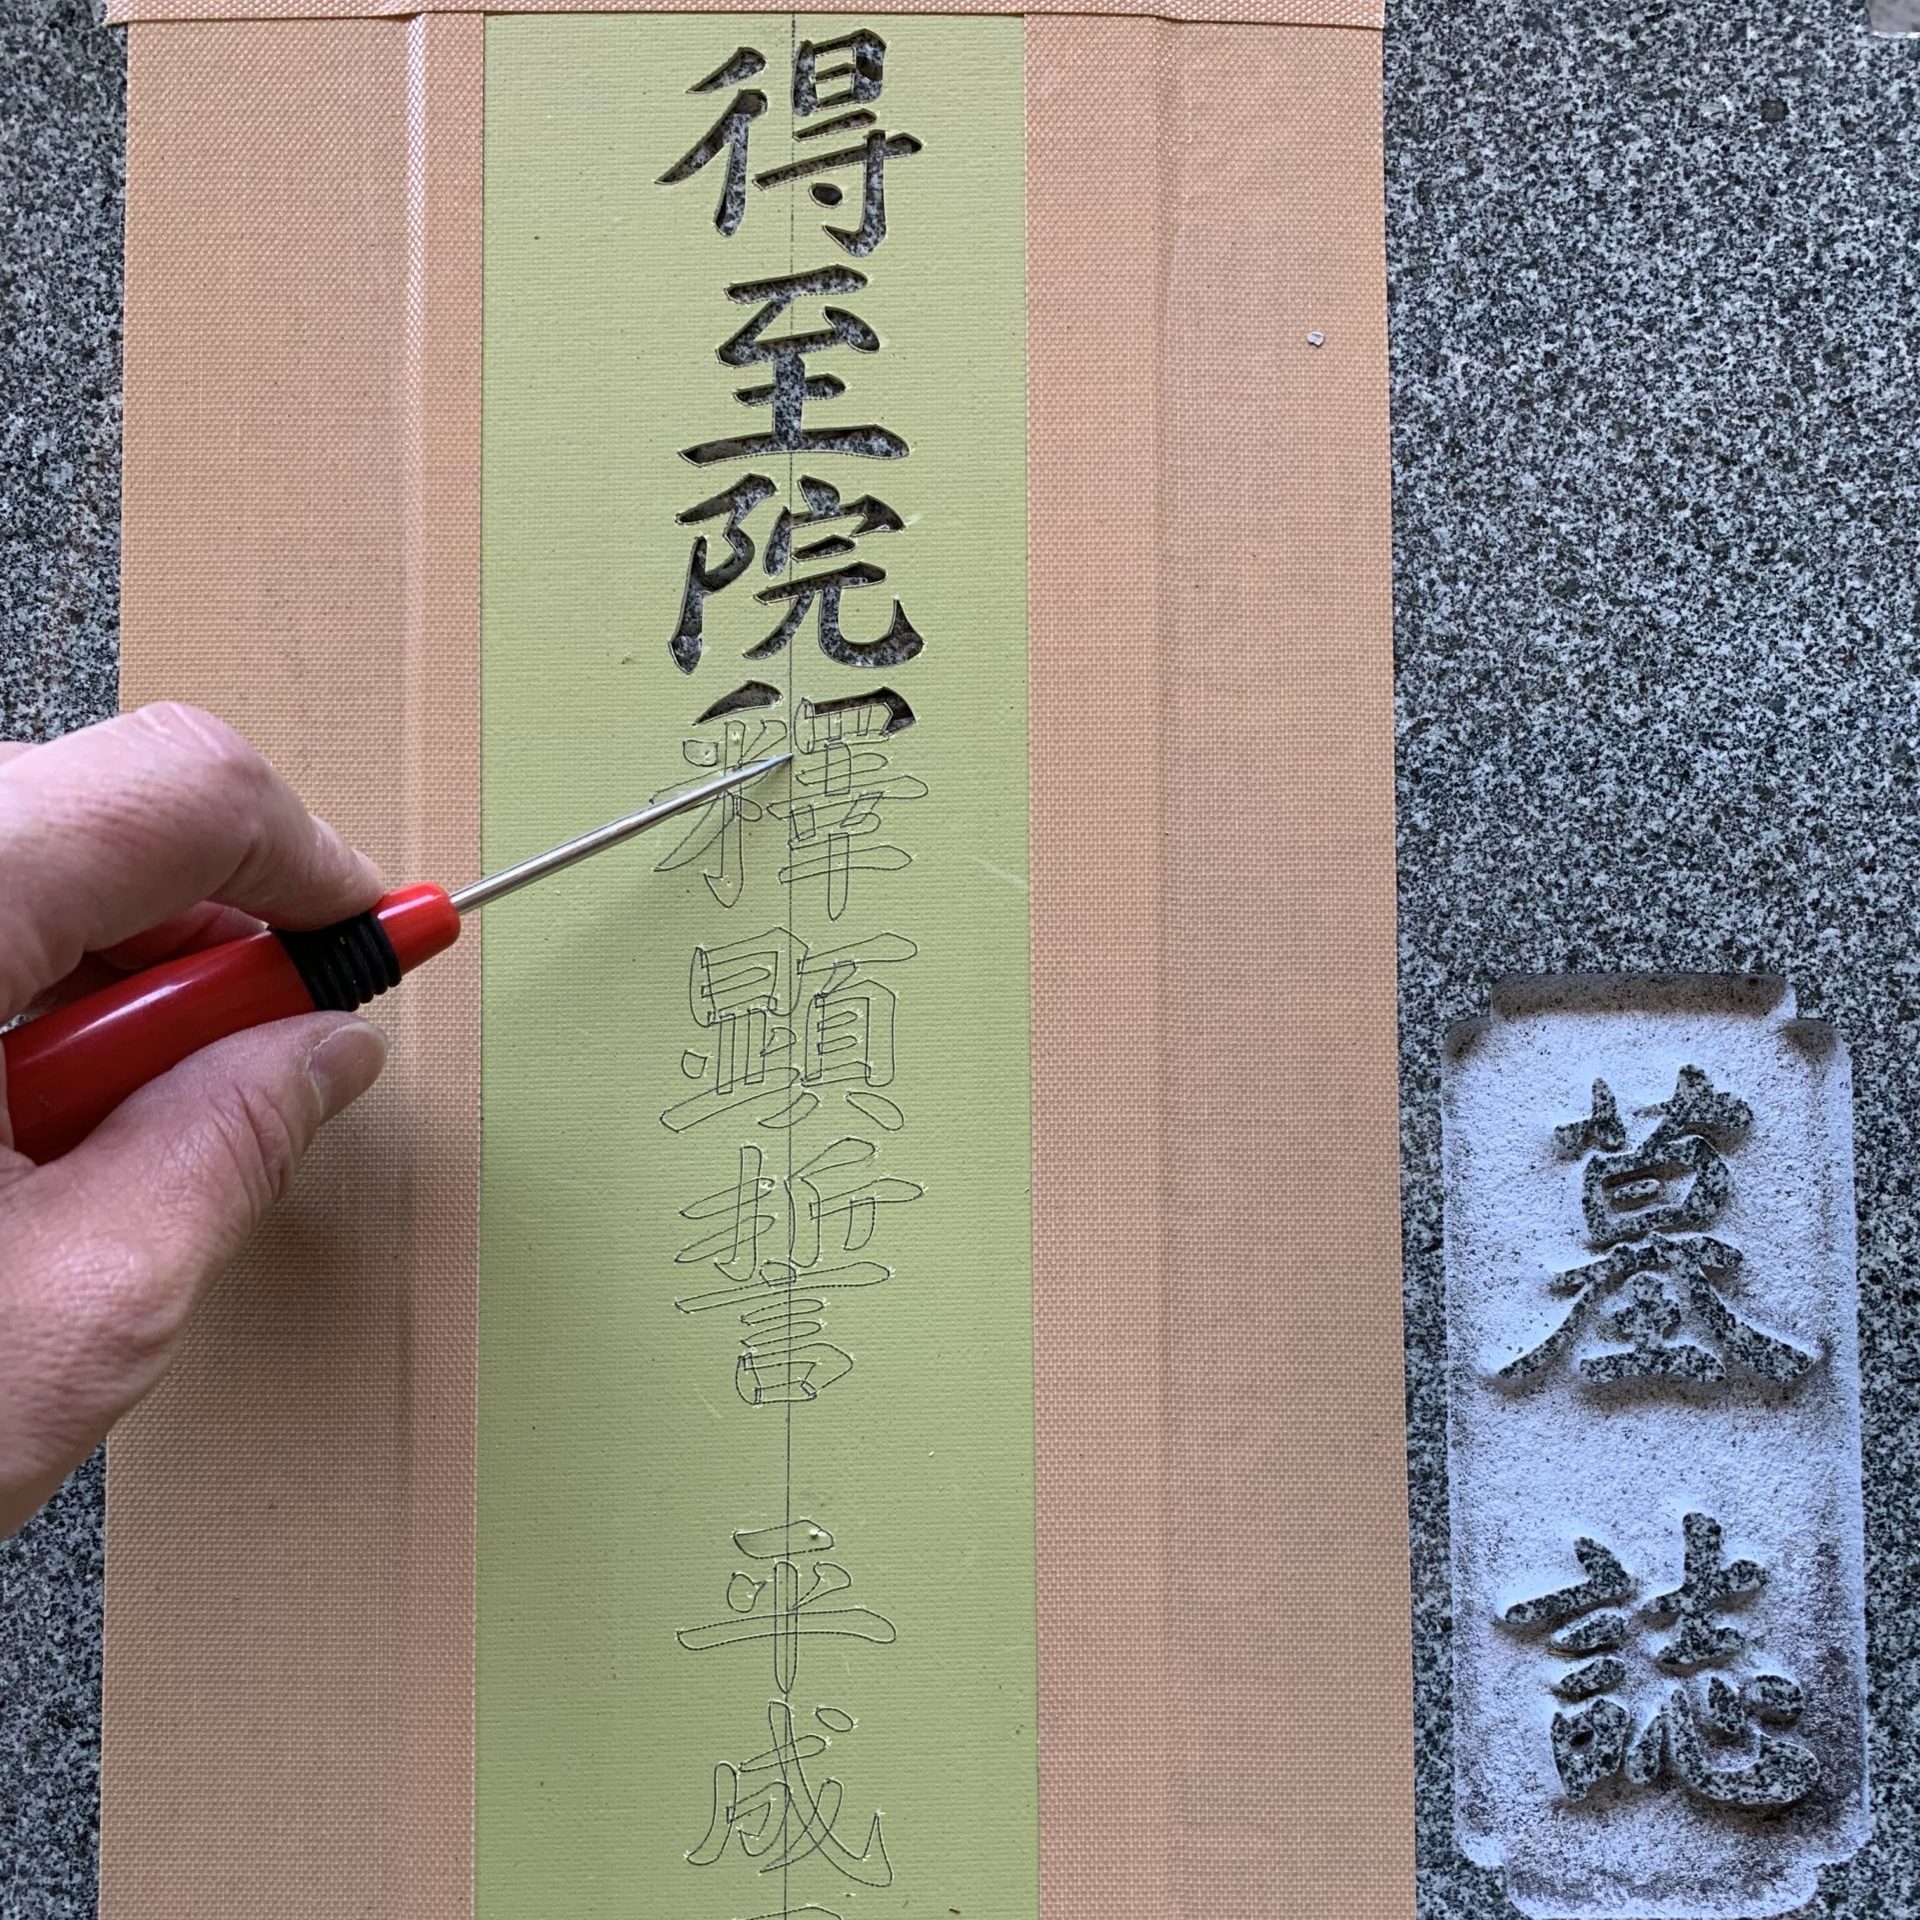 墓誌
得至院釋顯誓 平成